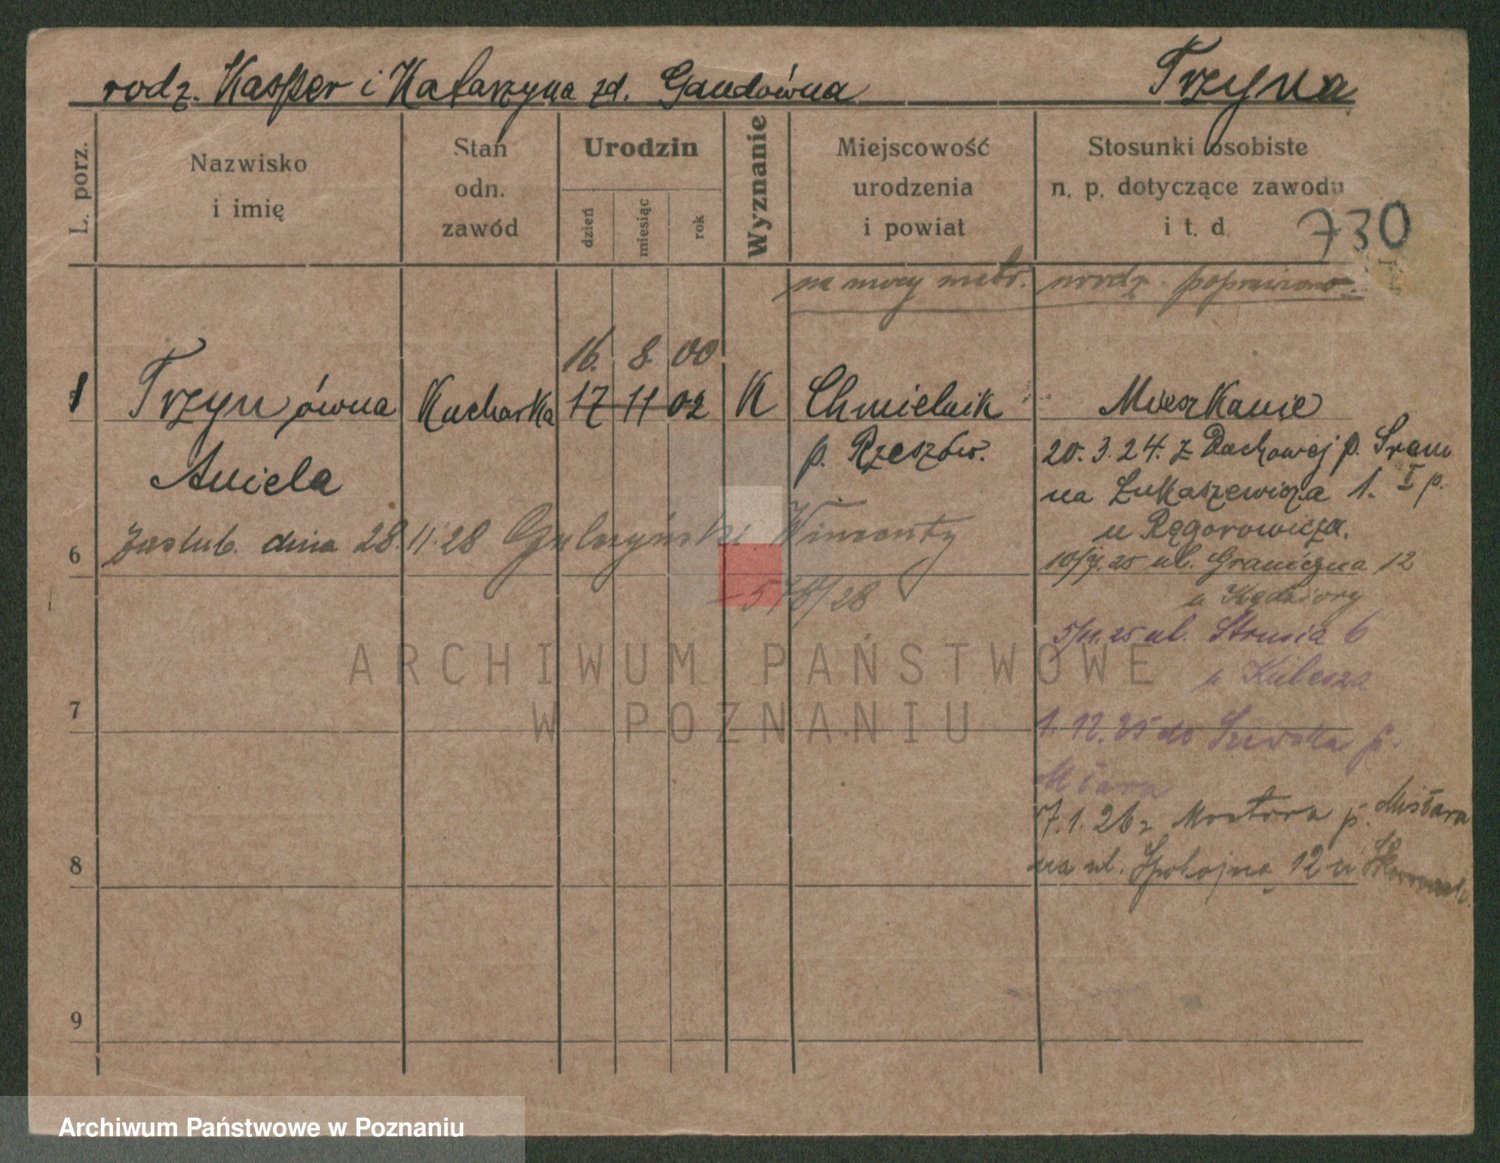 rodz. Kasper i Katarzyna zd. Gaudówna Trzyna
L. porz.
Nazwisko
i imię
Stan
odn.
zawód
Urodzin
dzień
miesiąc
rok
Wyznanie
Miejscowość
urodzenia
i powiat
Stosunki osobiste
n. p. dotyczące zawodu
i t. d.
730
na mocy metr. urodz. poprawiono
16. 8. 00
1 Trzynówna Kucharka 17 11 02 K Chmielnik Mieszkanie
Aniela p. Rzeszów.
20.3.24. z Dachowej p. Śrem
na Łukaszewicza 1. I p.
u Ręgorowicza.
6 Zaślub. dnia 28.11.28 Gulczyński Wincenty
578/28
ul. Graniczna 12
u Kędziory
5/11.25 ul. Strusia 6
u Kubesza
7
1.12.25 do
7.1.26 z p.
na ul. Spokojną 12 u
8
9
ARCHIWUM PAŃSTWOWE
W POZNANIU
Archiwum Państwowe w Poznaniu